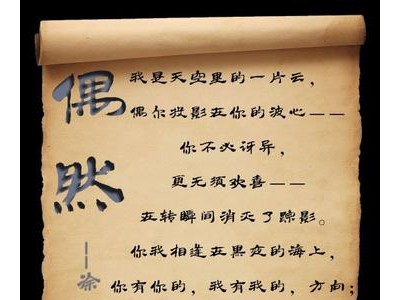 偶然
——徐
我是天空里的一片云，
偶尔投影在你的波心——
你不必讶异，
更无须欢喜——
在转瞬间消灭了踪影。
你我相逢在黑夜的海上，
你有你的，我有我的，方向；